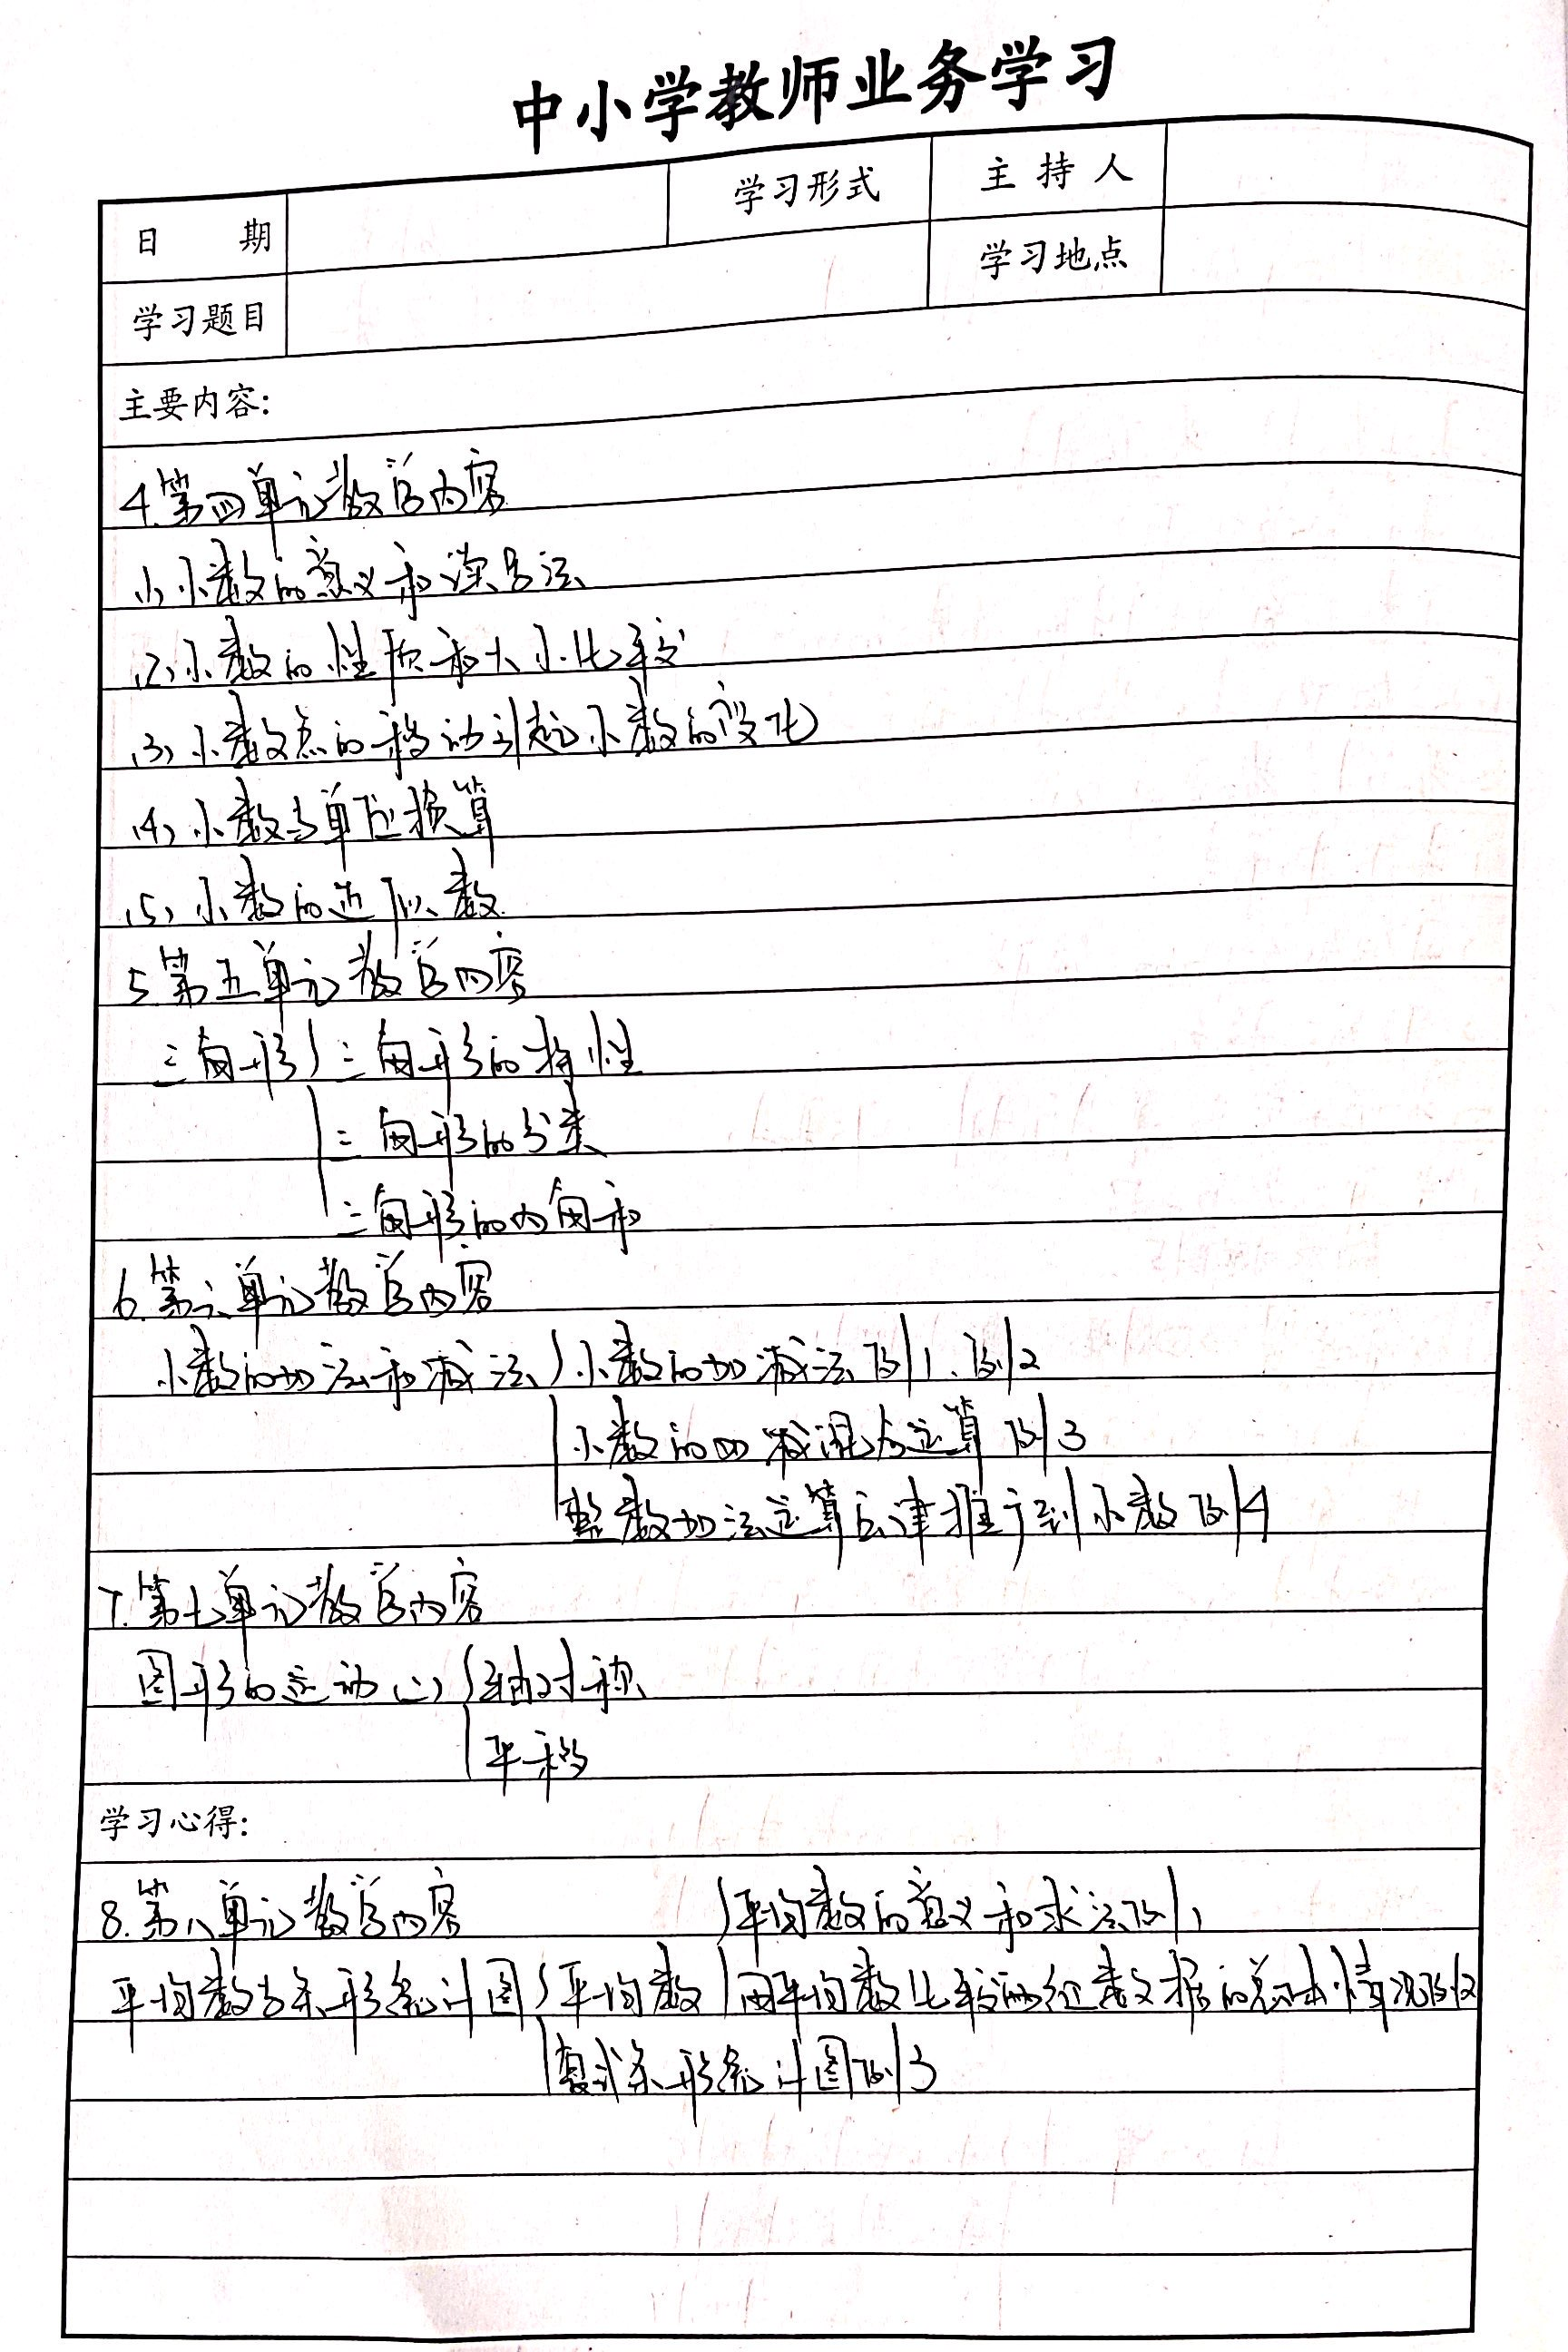 中小学教师业务学习
日 期 学习形式 主持人
学习题目 学习地点
主要内容:
4.第四单元教学内容
(1)小数的意义和读写法
(2)小数的性质和大小比较
(3)小数点的移动引起小数的变化
(4)小数与单位换算
(5)小数的近似数
5.第五单元教学内容
三角形{三角形的特性
三角形的分类
三角形的内角和
6.第六单元教学内容
小数的加法和减法{小数的加减法 例1、例2
小数的加减混合运算 例3
整数加法运算定律推广到小数 例4
7.第七单元教学内容
图形的运动(二){轴对称
平移
学习心得:
8.第八单元教学内容 {平均数的意义和求法例1
平均数与条形统计图{平均数 用平均数比较两组数据的总体情况例2
复式条形统计图例3